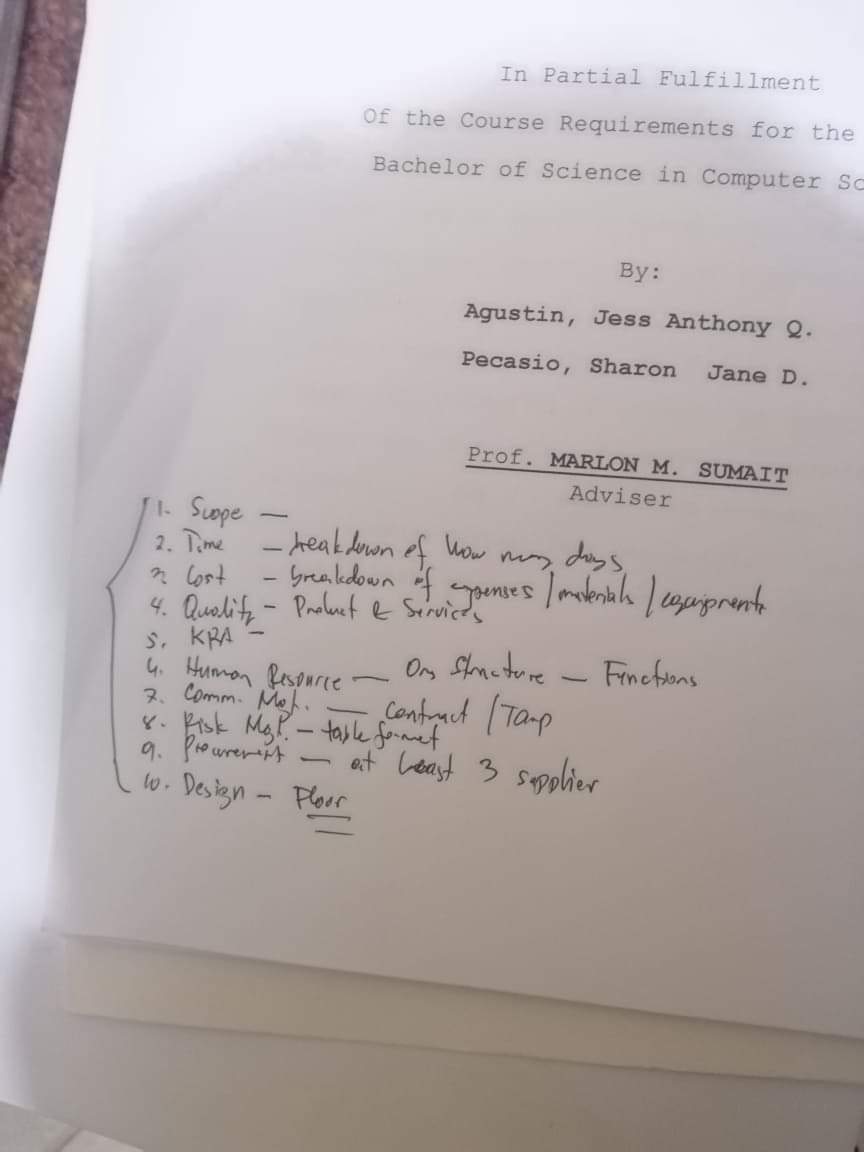 In Partial Fulfillment
Of the Course Requirements for the
Bachelor of Science in Computer Sc
By:
Agustin, Jess Anthony Q.
Pecasio, Sharon Jane D.
Prof. MARLON M. SUMAIT
Adviser
1. Scope —
2. Time — breakdown of how many days
3. Cost - breakdown of expenses / materials / equipments
4. Quality - Product & Services
5. KRA -
6. Human Resource — Org Structure — Functions
7. Comm. Mgt. — Contract / Tarp
8. Risk Mgt. - table format
9. Procurement — at least 3 supplier
10. Design - Floor